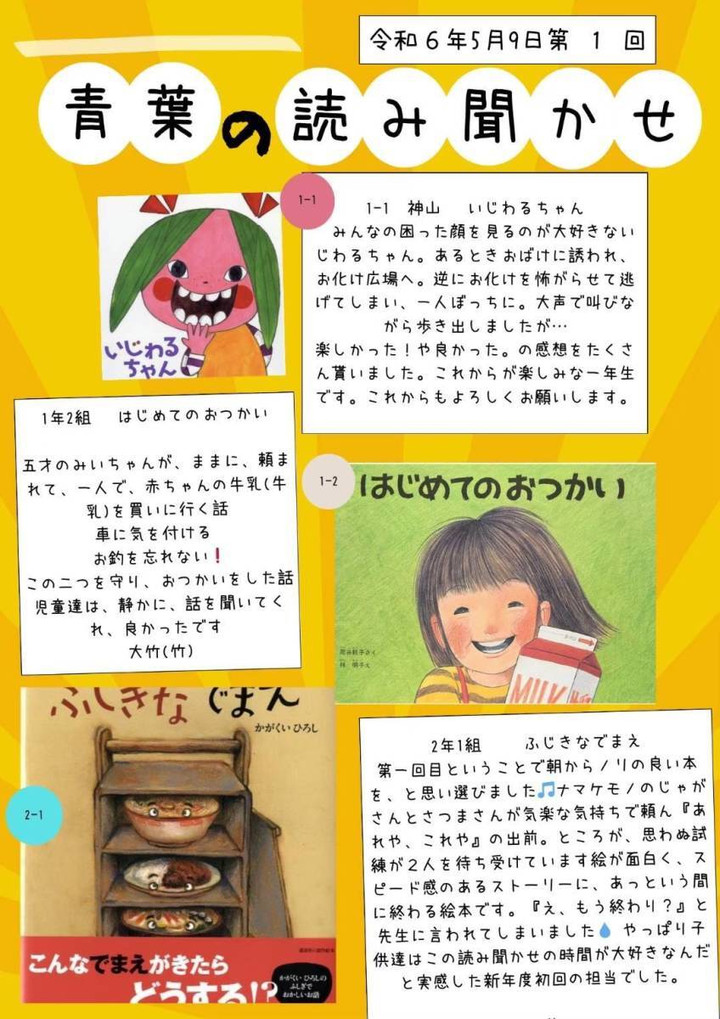 令和6年5月9日第 1 回
青葉の読み聞かせ
いじわる
ちゃん
1-1
1-1 神山 いじわるちゃん
みんなの困った顔を見るのが大好きない
じわるちゃん。あるときおばけに誘われ、
お化け広場へ。逆にお化けを怖がらせて逃
げてしまい、一人ぼっちに。大声で叫びな
がら歩き出しましたが…
楽しかった！や良かった。の感想をたくさ
ん貰いました。これからが楽しみな一年生
です。これからもよろしくお願いします。
1年2組 はじめてのおつかい
五才のみいちゃんが、ままに、頼ま
れて、一人で、赤ちゃんの牛乳(牛
乳)を買いに行く話
車に気を付ける
お釣を忘れない❗
この二つを守り、おつかいをした話
児童達は、静かに、話を聞いてく
れ、良かったです
大竹(竹)
1-2
はじめてのおつかい
筒井頼子さく
林 明子え
MILK
ふしぎな でまえ
かがくい ひろし
2-1
こんなでまえがきたら
どうする!?
かがくい ひろしの
ふしぎで
おかしいお話
2年1組 ふじきなでまえ
第一回目ということで朝からノリの良い本
を、と思い選びました🎵ナマケモノのじゃが
さんとさつまさんが気楽な気持ちで頼ん『あ
れや、これや』の出前。ところが、思わぬ試
練が2人を待ち受けています絵が面白く、ス
ピード感のあるストーリーに、あっという間
に終わる絵本です。『え、もう終わり？』と
先生に言われてしまいました💧 やっぱり子
供達はこの読み聞かせの時間が大好きなんだ
と実感した新年度初回の担当でした。